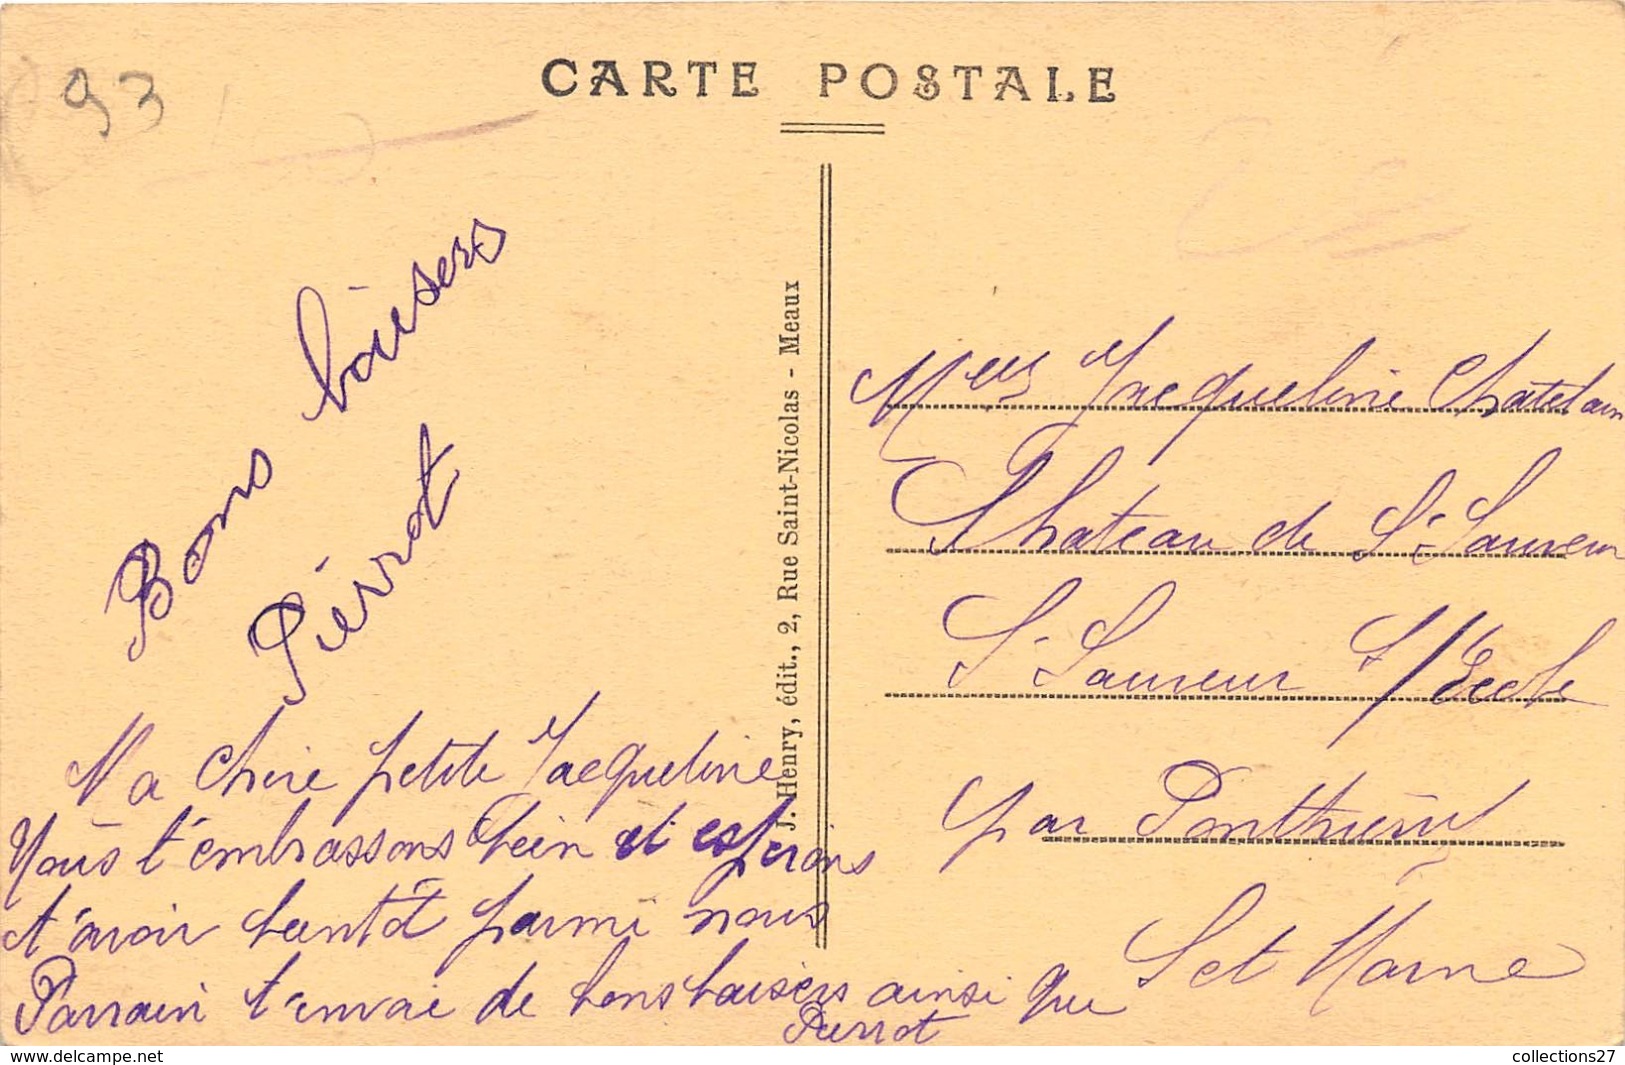 93
CARTE POSTALE
Bons baisers
Pierrot
Ma chère petite Jacqueline
Nous t'embrassons bien et espérons
t'avoir bientôt parmi nous
Parrain t'envoie de bons baisers ainsi que
Pierrot
J. Henry, édit., 2, Rue Saint-Nicolas - Meaux
Melle Jacqueline Chatelain
Chateau de St Sauveur
St Sauveur s/ Ecole
par Ponthierry
S et Marne
www.delcampe.net
collections27